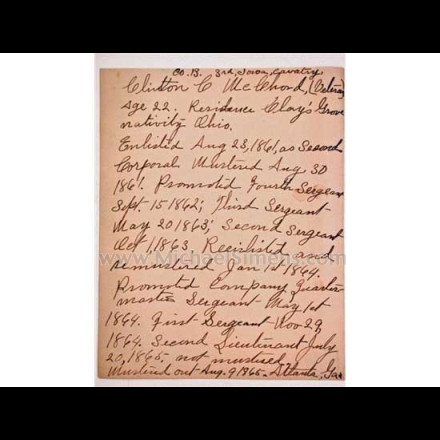 Co. B. 3rd, Iowa, Cavalry
Clinton C. McChord, (Veteran)
age 22. Residence Clay's Grove
nativity Ohio.
Enlisted Aug 23, 1861, as Second
Corporal Mustered Aug 30
1861. Promoted Fourth Sergeant
Sept. 15 1862; Third Sergeant
May 20 1863; Second Sergeant
Oct 1, 1863. Reenlisted and
www.MichaelSimens.com
remustered Jan 1st 1864.
Promoted Company Quarter
master Sergeant May 1st
1864. First Sergeant Nov 29,
1864. Second Lieutenant July
20, 1865. not mustered
Mustered out Aug. 9 1865. Atlanta, Ga